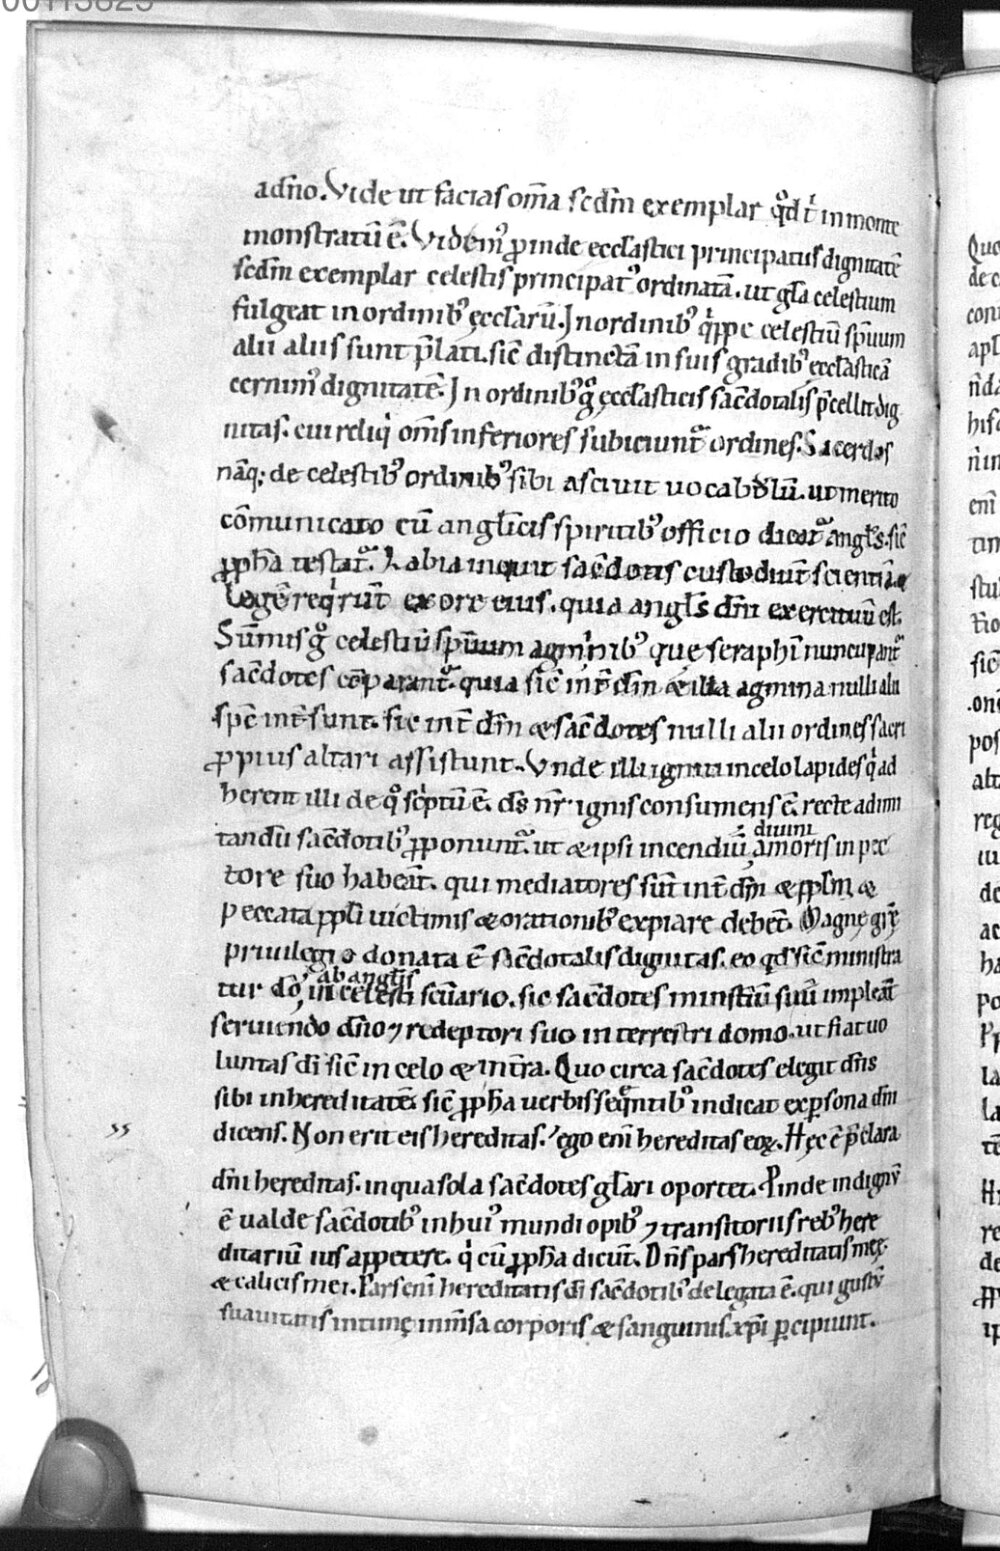 adño. Vide ut facias om̄a scdm̄ exemplar qd t in monte
monstratū ē. Videm᷒ ꝓinde ecclastici principatus dignitatē
scdm̄ exemplar celestis principat᷒ ordinatā. ut gla celestium
fulgeat in ordinib᷒ ęcclarū. In ordinib᷒ qippe celestiū spūum
alii aliis sunt p̄lati. sic̄ distinctā in suis gradib᷒ ecclasticā
cernim᷒ dignitatē. In ordinib᷒ g ęcclasticis sac̄dotalis p̄cellit dig
nitas. cui reliq om̄s inferiores subiciunt ordines. Sacerdos
nāq; de celestib᷒ ordinib᷒ sibi asciuit uocablū. ut merito
cōmunicato cū anglicis spiritib᷒ officio dicat angls. sic̄
ꝓpha testat. Labia inquit sac̄dotis custodiunt scientiā &
legē reqrūt ex ore eius. quia angls dm̄ exercituū est.
Sūmis g celestiū spūum agminib᷒ que seraphī nuncupant
sac̄dotes cōparant. quia sic̄ int̄ dm̄ & illa agmina nulli alii
spc̄ int̄sunt. sic int̄ dm̄ & sac̄dotes nulli alii ordines sacri
ꝓpius altari assistunt. Vnde illi igniti in celo lapides q ad
herent illi de q sc̄ptū ē. ds̄ nr̄ ignis consumens ē. recte adimi
tandū sac̄dotib᷒ ꝓponunt. ut & ipsi incendiū diuini amoris in pec
tore suo habeāt. qui mediatores sūt int̄ dm̄ & pplm̄, &
peccata ppli uictimis & orationib᷒ expiare debent. Magnę grę
priuilegio donata ē sac̄dotalis dignitas. eo qd sic̄ ministra
tur dō ab anglis in celesti sc̄uario. sic sac̄dotes minstīū suū impleāt
seruiendo dn̄o ⁊ redeptori suo in terrestri domo. ut fiat uo
luntas di sic̄ in celo & in tra. Quo circa sac̄dotes elegit dn̄s
sibi in hereditatē. sic̄ ꝓpha uerbis seqntib᷒ indicat ex ꝑsona dm̄i
dicens. Non erit eis hereditas. ego eni hereditas eoꝝ. Hęc ē p̄clara
dn̄i hereditas. in qua sola sac̄dotes glari oportet. Pinde indignū
ē ualde sac̄dotib᷒ in hui᷒ mundi opib᷒ ⁊ transitoriis reb᷒ here
ditariū ius appetere. q cū ꝓpha dicūt. Dn̄s pars hereditatis meę.
& calicis mei. Pars eni hereditatis di sac̄dotib᷒ delegata ē. qui gustū
suauitatis intimę in m̄sa corporis & sanguinis xp̄i ꝑcipiunt.